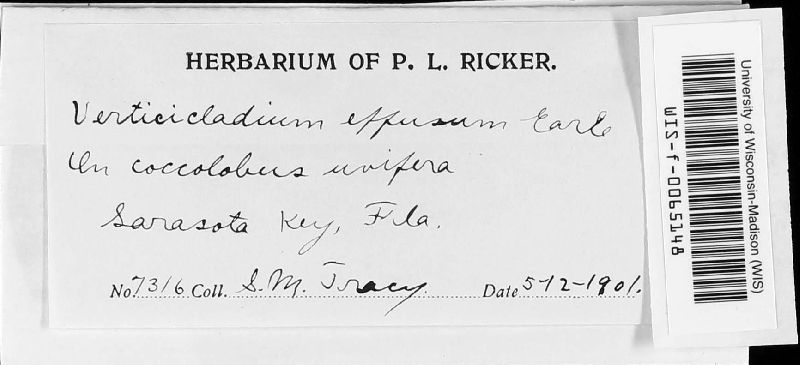 HERBARIUM OF P. L. RICKER.
Verticicladium effusum Earle
On coccolobus uvifera
Sarasota Key, Fla.
No 7316 Coll. S. M. Tracy. Date 5-12-1901.
University of Wisconsin-Madison (WIS)
WIS-f-0065148